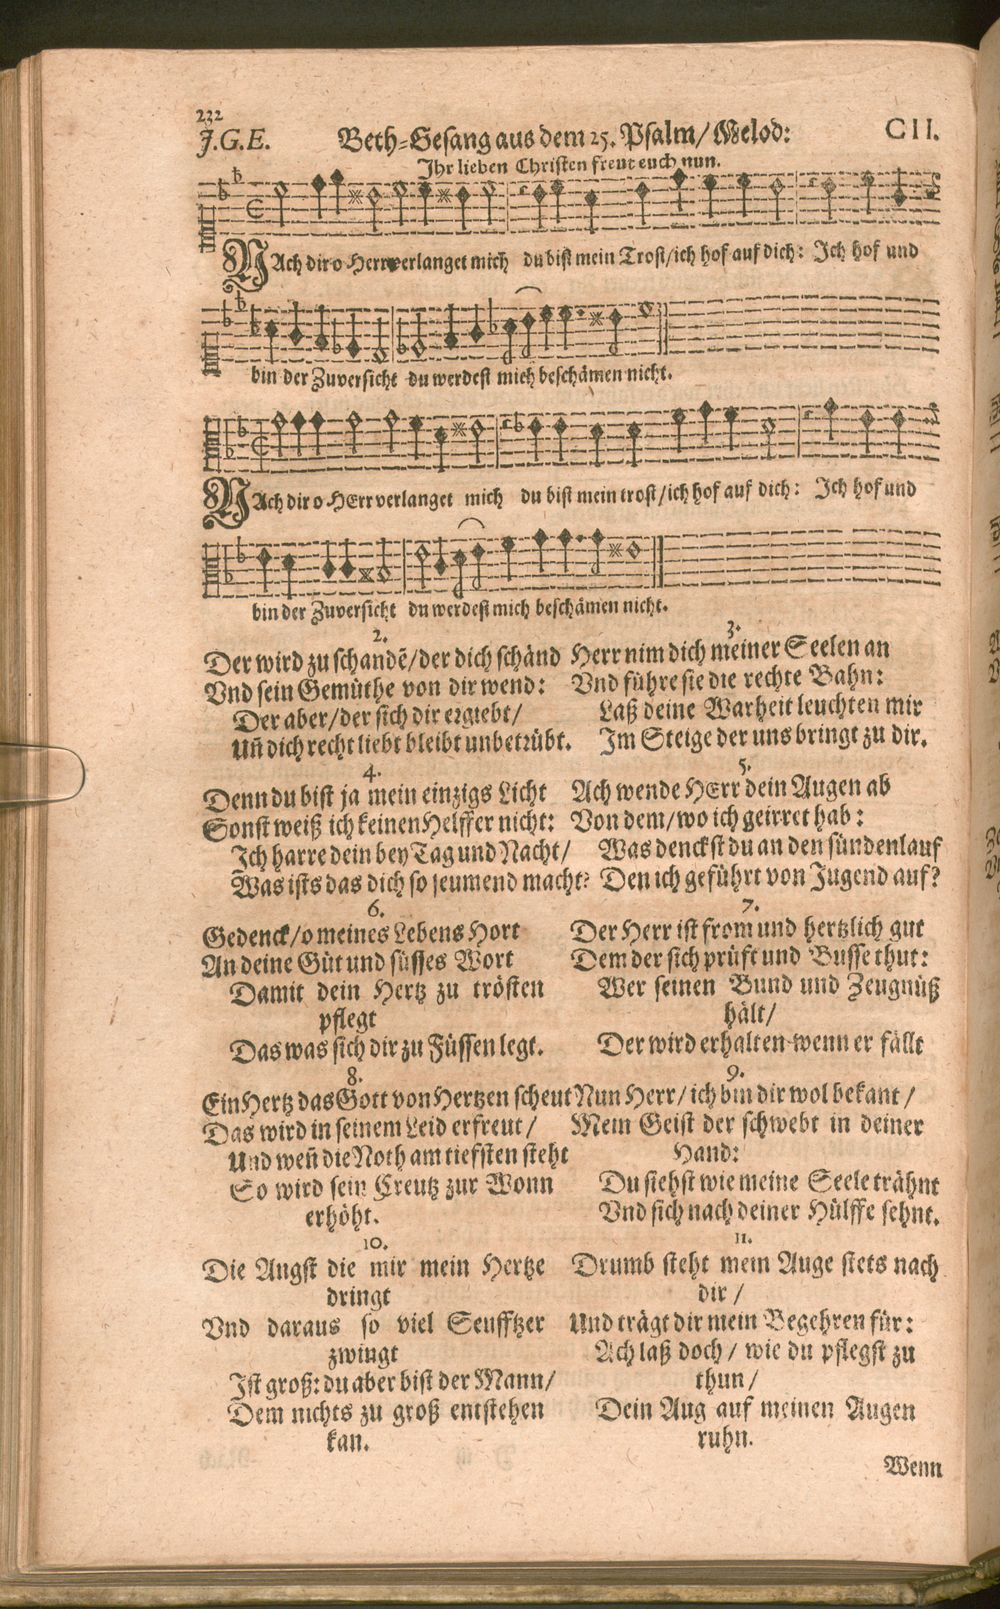 232
J.G.E. Beth-Gesang aus dem 25. Psalm/ Melod: CII.
Ihr lieben Christen freut euch nun.
NAch dir o Herr verlanget mich du bist mein Trost/ich hof auf dich: Ich hof und
bin der Zuversicht du werdest mich beschämen nicht.
NAch dir o HErr verlanget mich du bist mein trost/ich hof auf dich: Ich hof und
bin der Zuversicht du werdest mich beschämen nicht.
2.
Der wird zu schandẽ/der dich schänd
Vnd sein Gemüthe von dir wend:
Der aber/der sich dir ergiebt/
Uñ dich recht liebt bleibt unbetrübt.
3.
Herr nim dich meiner Seelen an
Vnd führe sie die rechte Bahn:
Laß deine Warheit leuchten mir
Im Steige der uns bringt zu dir.
4.
Denn du bist ja mein einzigs Licht
Sonst weiß ich keinen Helffer nicht:
Ich harre dein bey Tag und Nacht/
Was ists das dich so jeumend macht?
5.
Ach wende HErr dein Augen ab
Von dem/wo ich geirret hab:
Was denckst du an den sündenlauf
Den ich geführt von Jugend auf?
6.
Gedenck/o meines Lebens Hort
An deine Güt und süsses Wort
Damit dein Hertz zu trösten
pflegt
Das was sich dir zu Füssen legt.
7.
Der Herr ist from und hertzlich gut
Dem der sich prüft und Busse thut:
Wer seinen Bund und Zeugnüß
hält/
Der wird erhalten wenn er fällt
8.
Ein Hertz das Gott von Hertzen scheut
Das wird in seinem Leid erfreut/
Und weñ die Noth am tiefsten steht
So wird sein Creutz zur Wonn
erhöht.
9.
Nun Herr/ ich bin dir wol bekant/
Mein Geist der schwebt in deiner
Hand:
Du siehst wie meine Seele trähnt
Vnd sich nach deiner Hülffe sehnt.
10.
Die Angst die mir mein Hertze
dringt
Vnd daraus so viel Seufftzer
zwingt
Ist groß: du aber bist der Mann/
Dem nichts zu groß entstehen
kan.
11.
Drumb steht mein Auge stets nach
dir/
Und trägt dir mein Begehren für:
Ach laß doch/ wie du pflegst zu
thun/
Dein Aug auf meinen Augen
ruhn.
Wenn